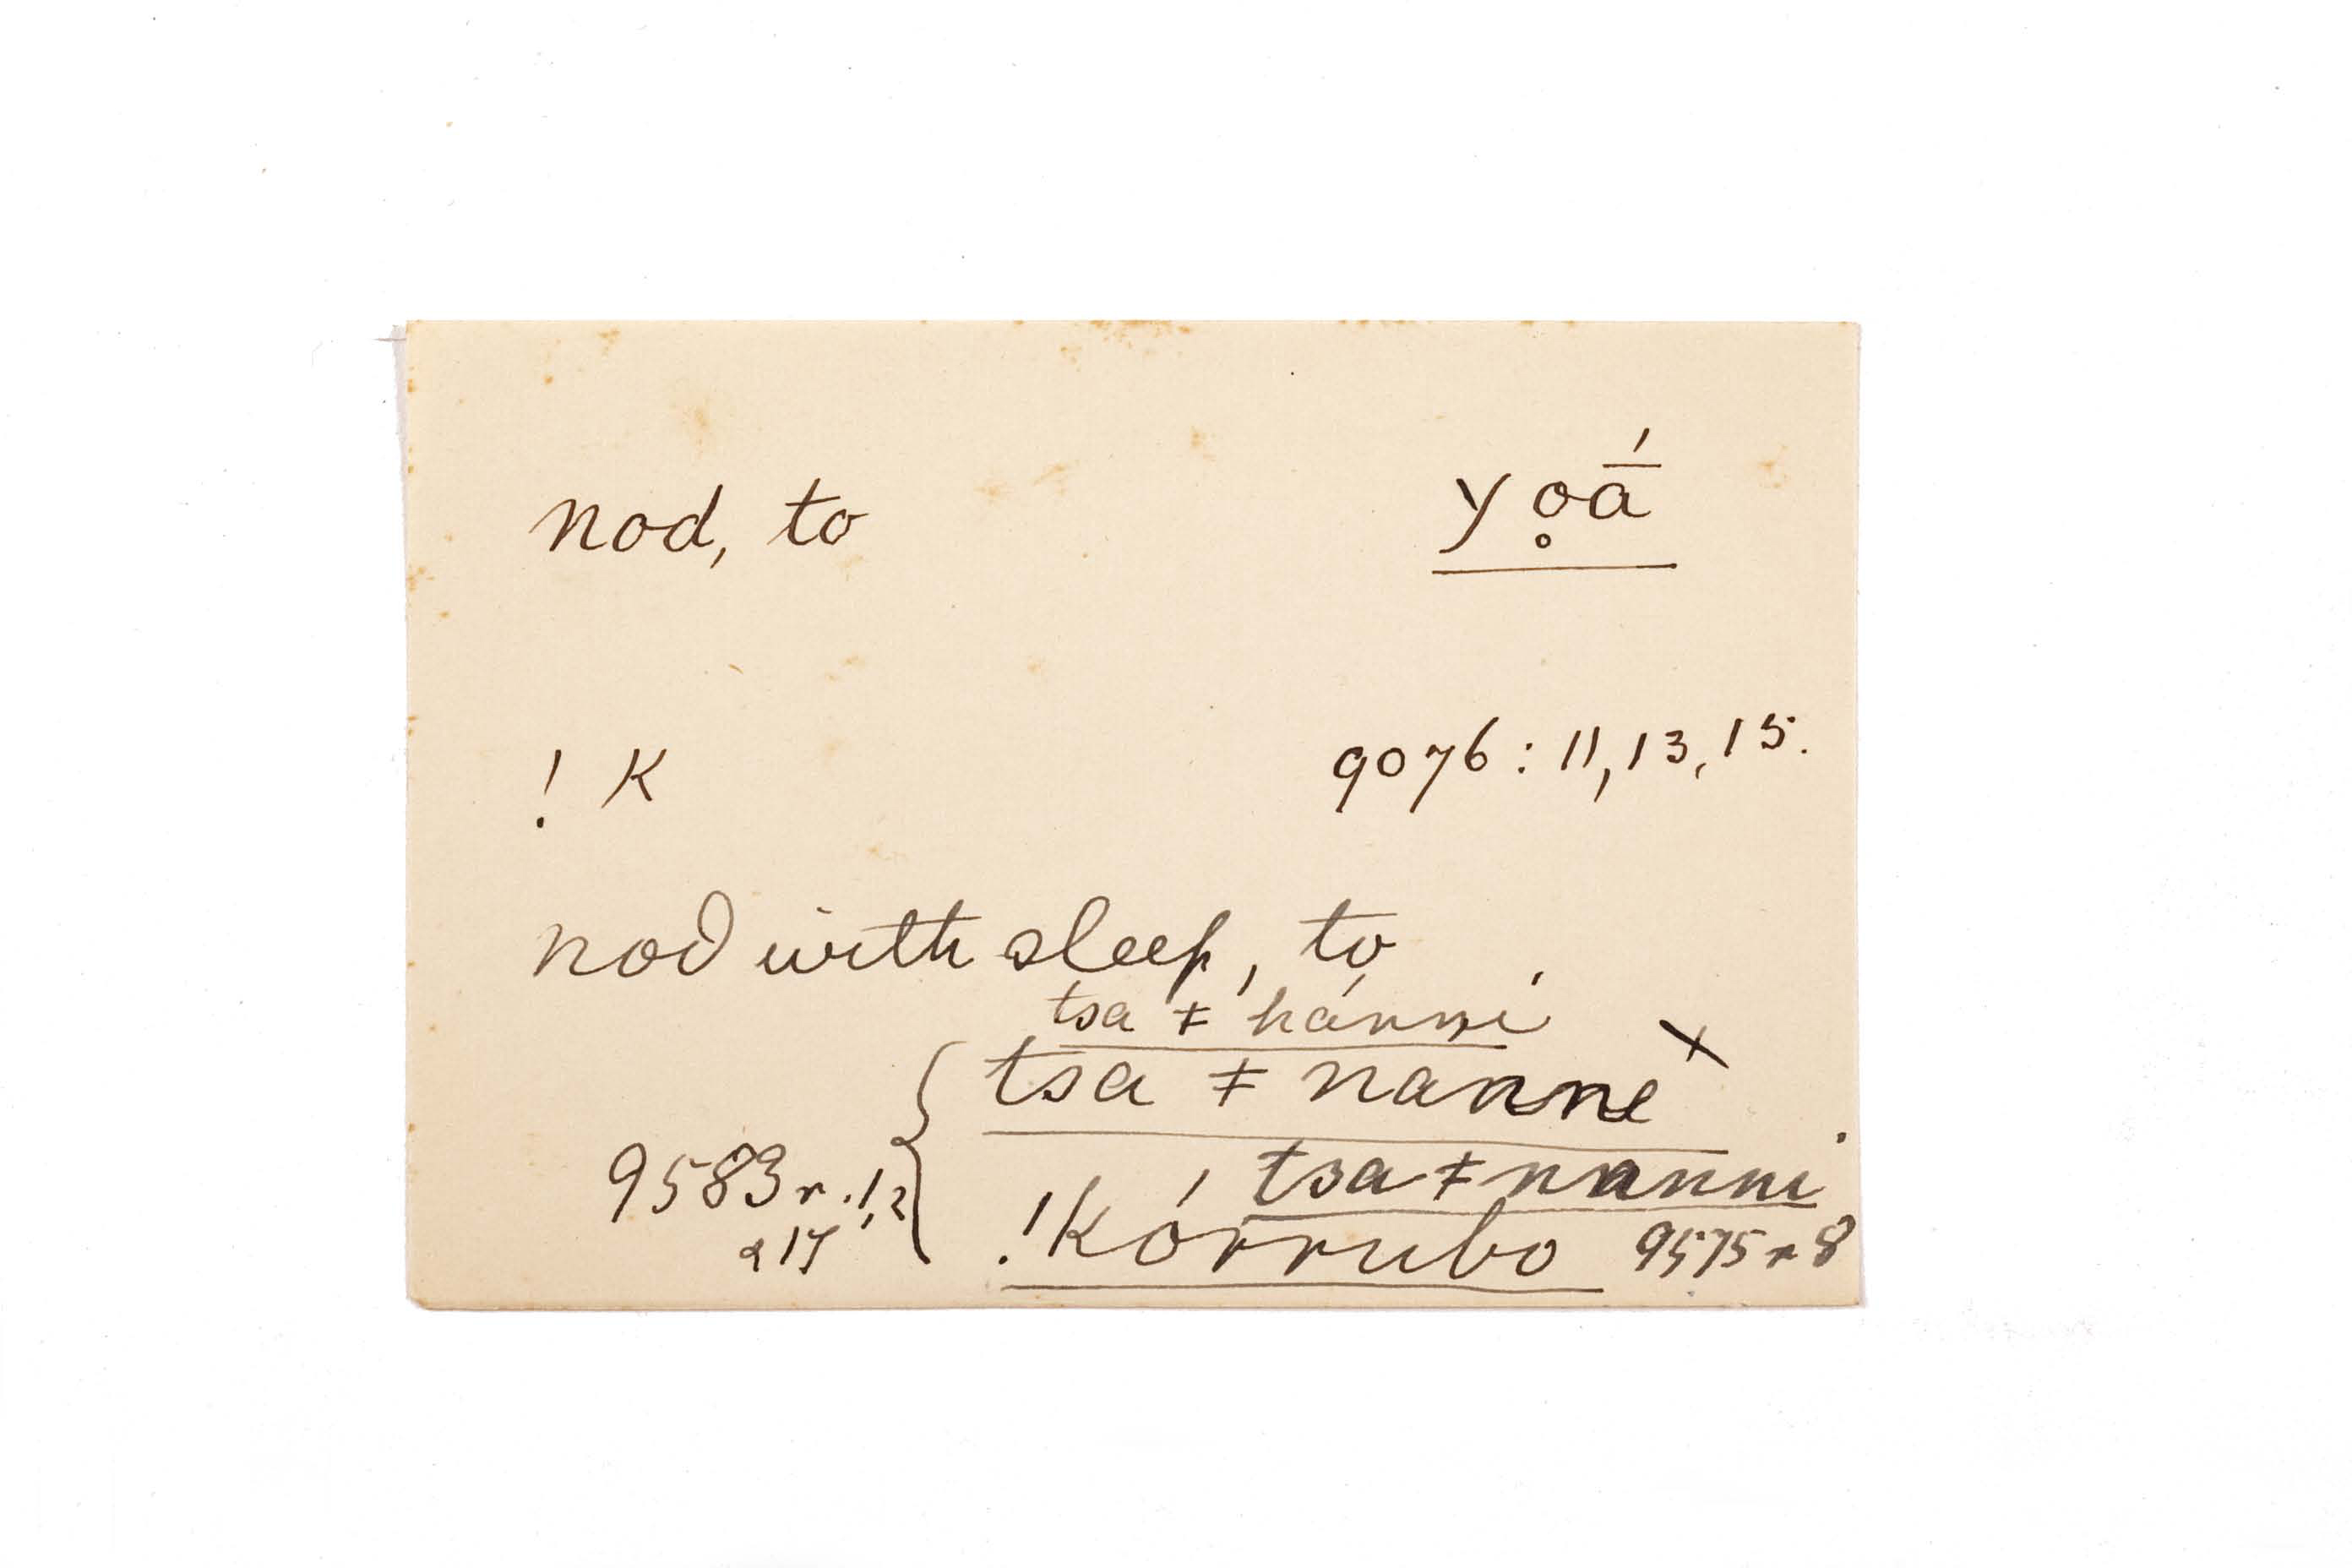 nod, to yo̥ā́
! K 9076 : 11, 13, 15.
nod with sleep, to
tsa ǂ hánní
tsa ǂ nanne ×
tsa ǂ nanni
9583 r. 1,2
!kórrubo 9575 r 8